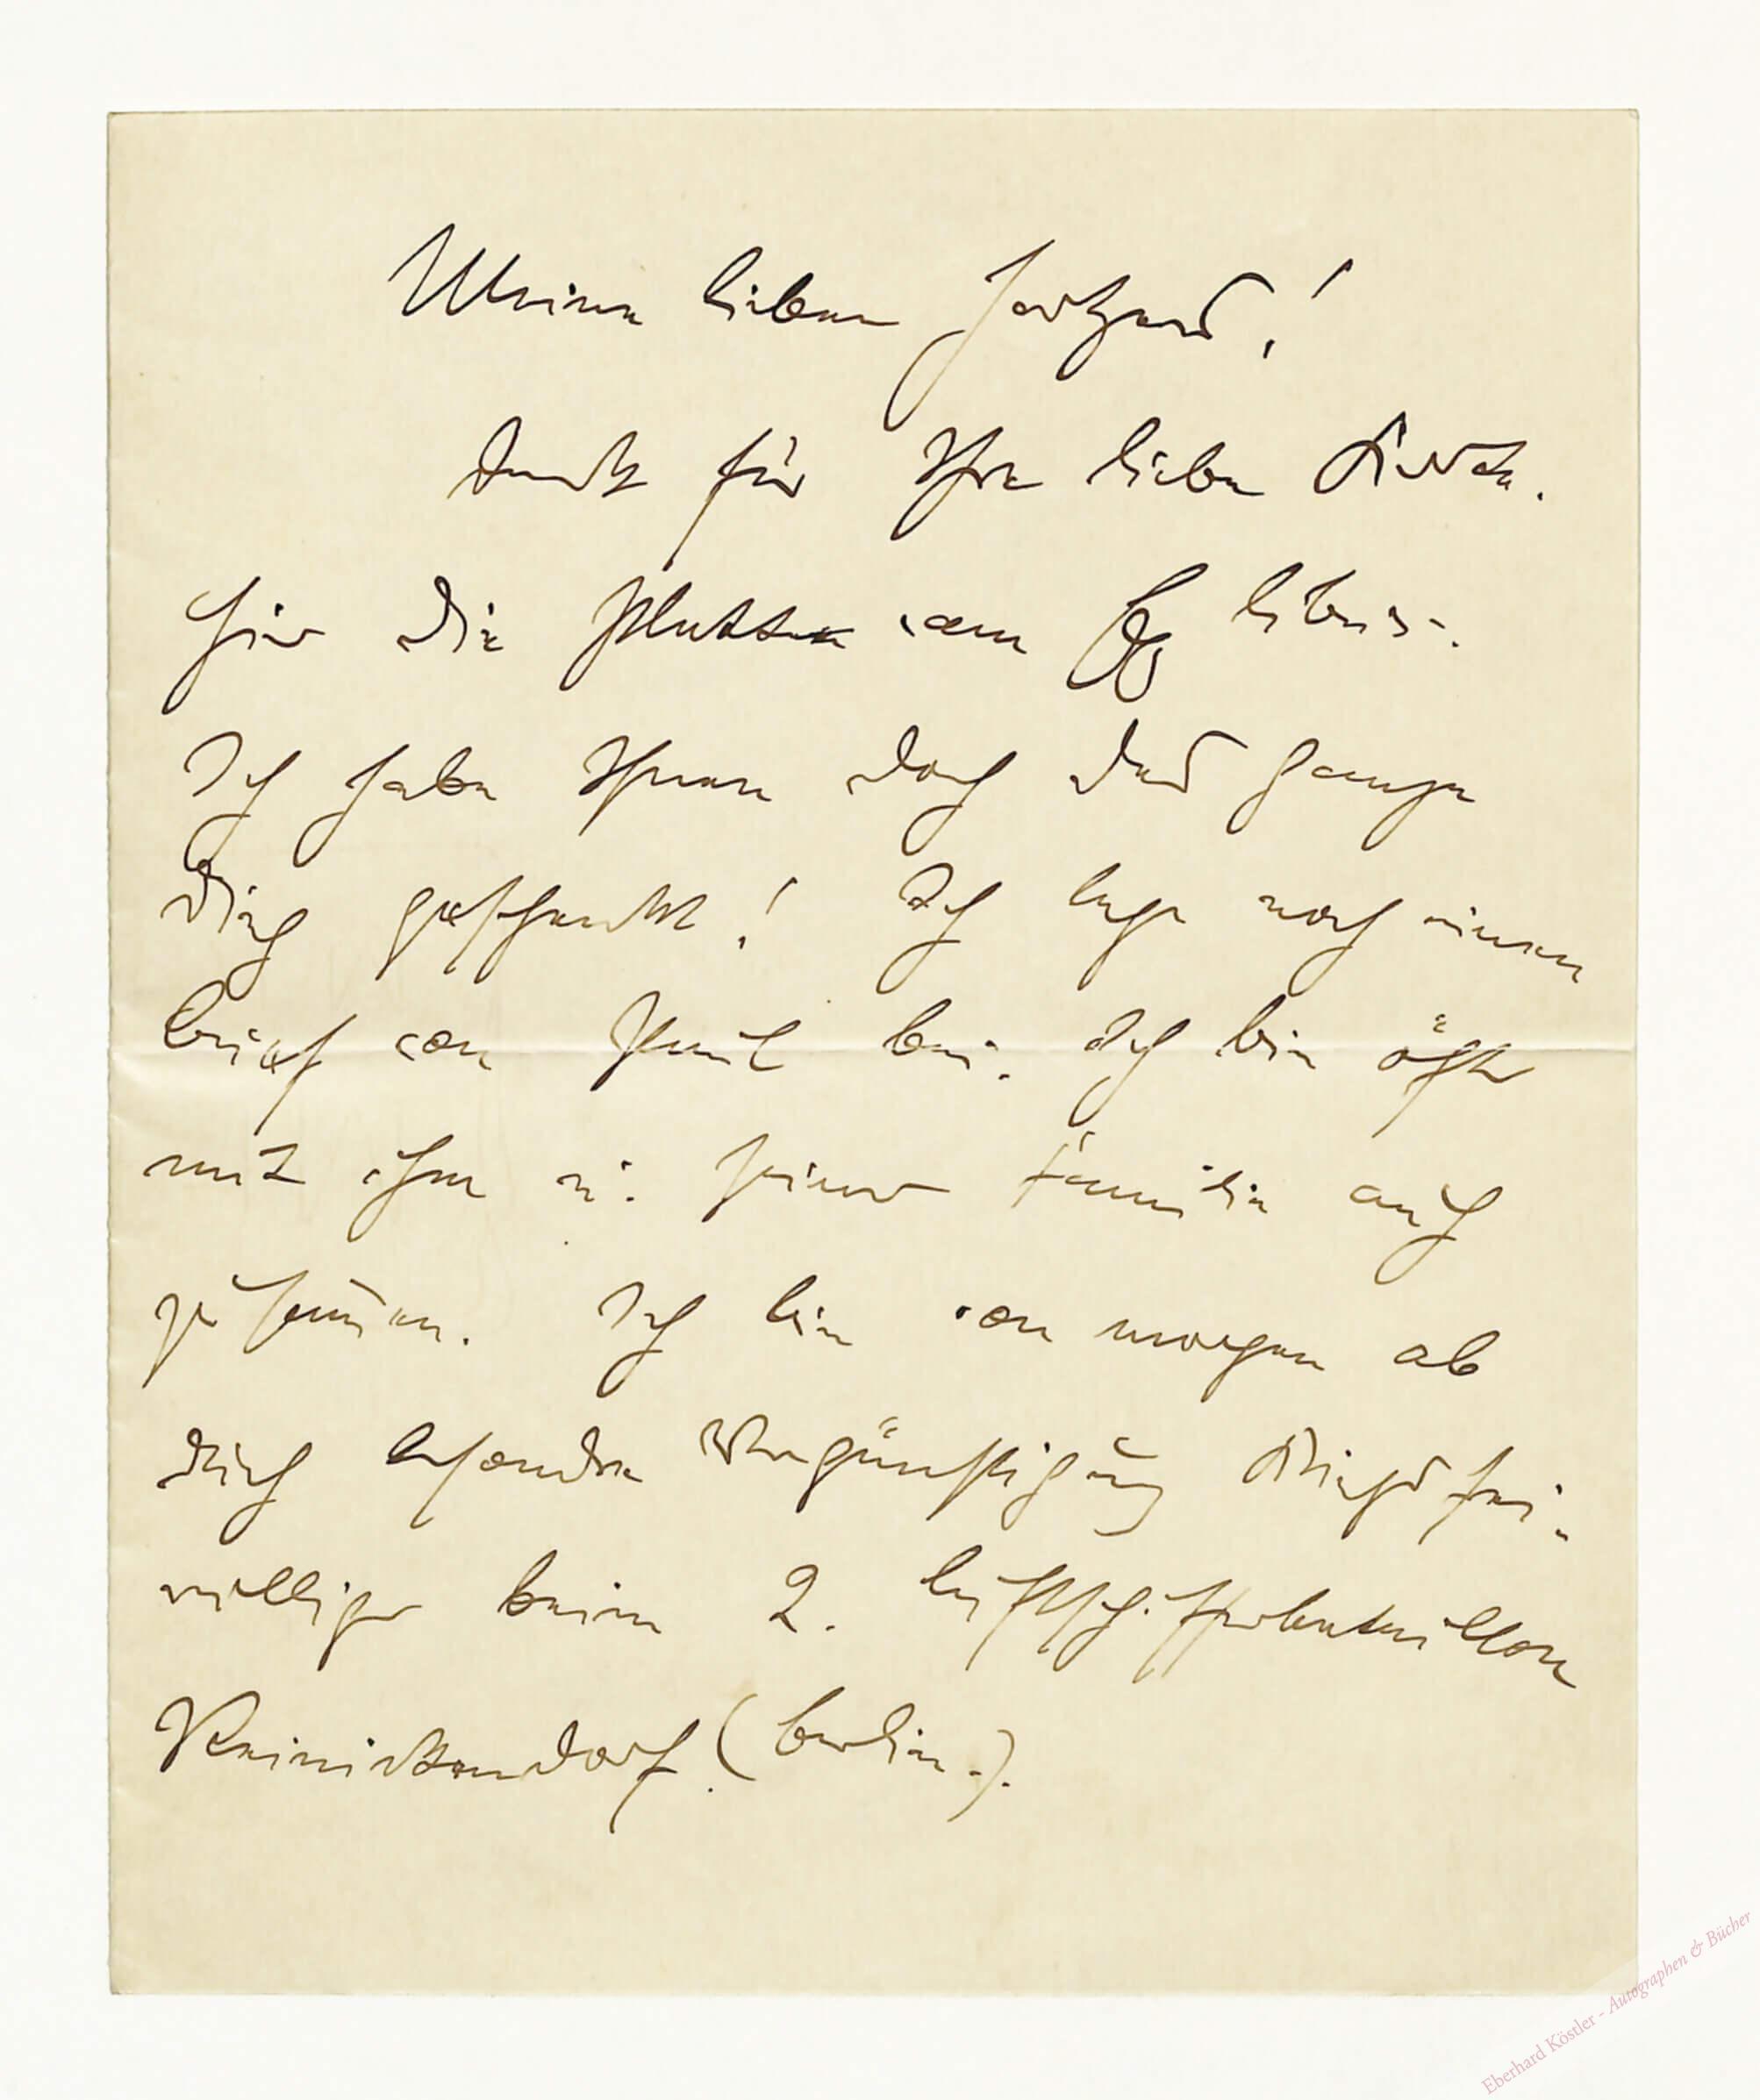 Meine lieben
Dank für Ihre liebe Karte.
Hier die Platte vom Ex libris.
Ich habe Ihnen doch das ganze
Ding geschenkt! Ich lege noch einen
Brief von bei. Ich bin öfter
mit ihm u. seiner Familie auch
zusam̄en. Ich bin von morgen ab
durch besondre Vergünstigung Kriegsfrei-
williger beim 2. Luftschifferbataillon
Reinickendorf (Berlin.).
Eberhard Köstler - Autographen & Bücher